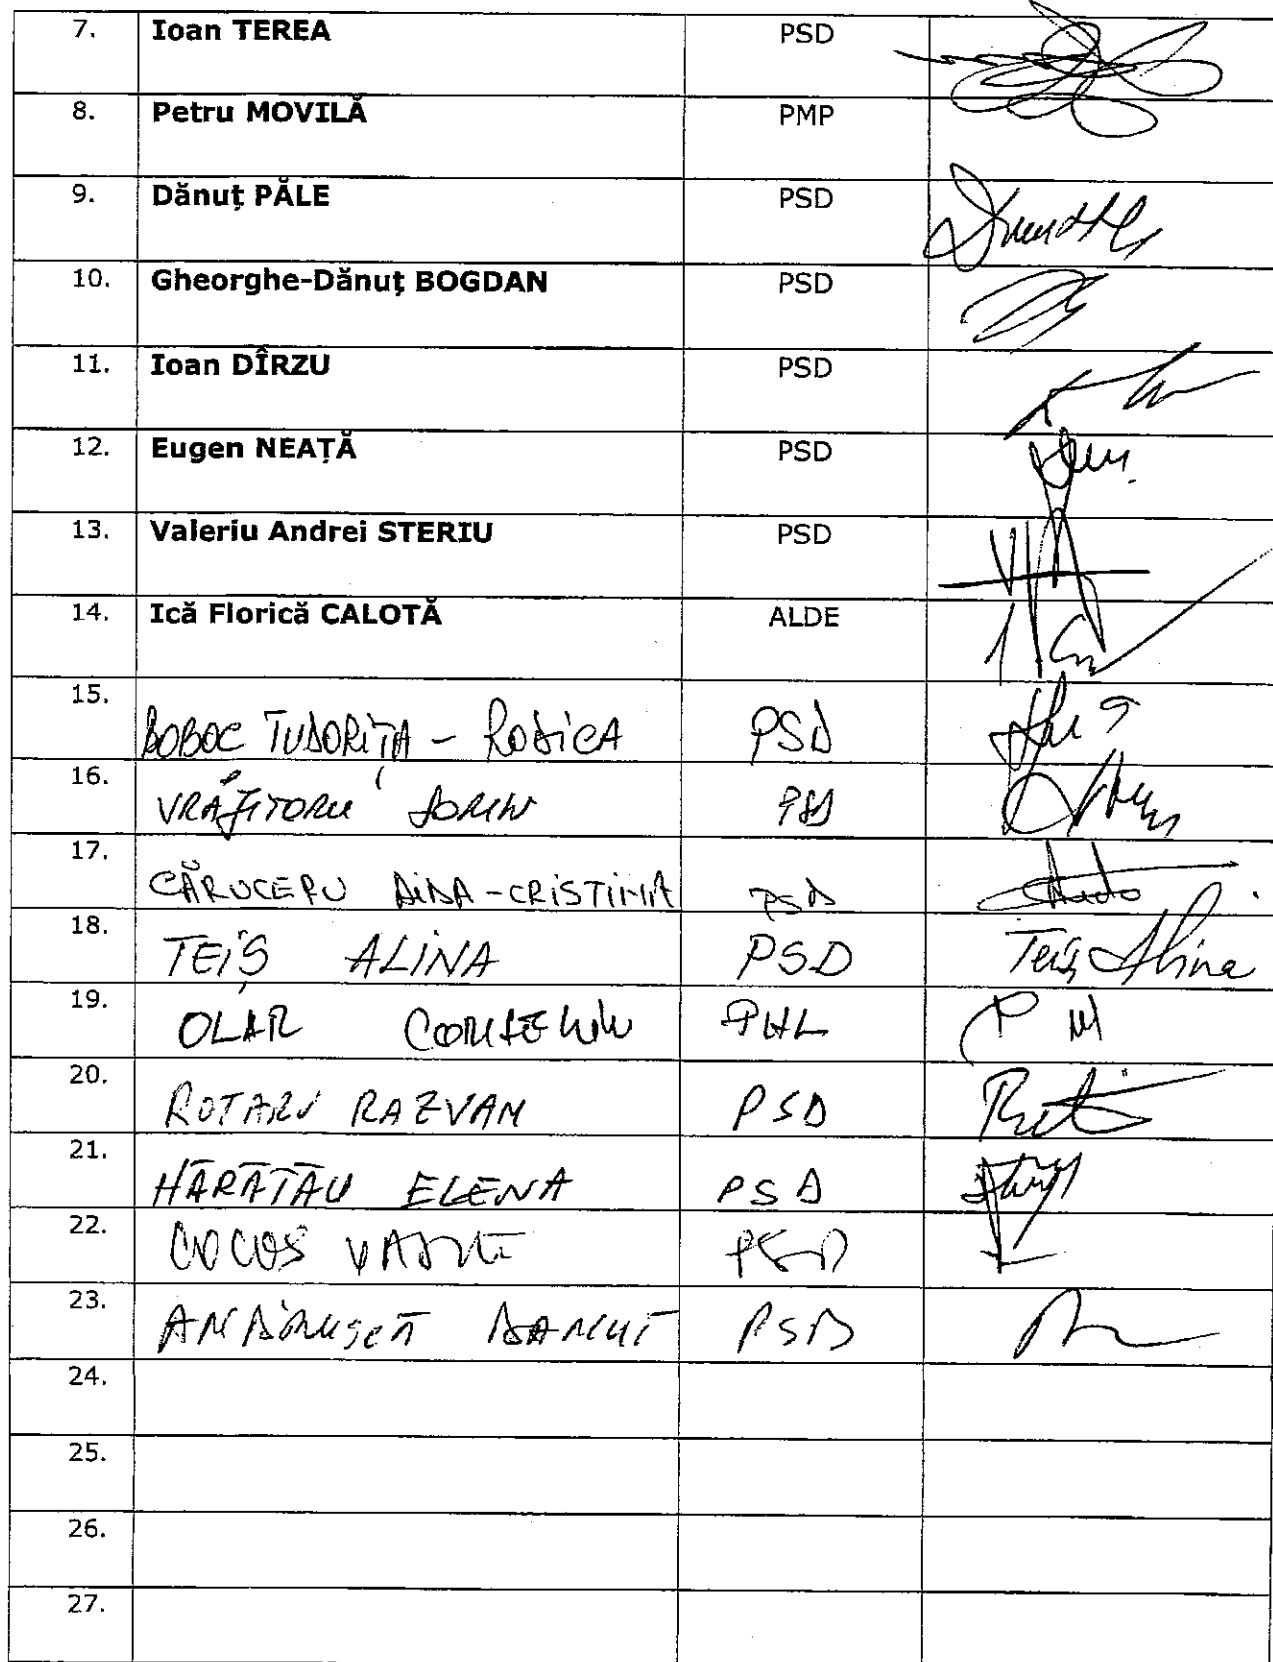 7. Ioan TEREA PSD
8. Petru MOVILĂ PMP
9. Dănuț PĂLE PSD
10. Gheorghe-Dănuț BOGDAN PSD
11. Ioan DÎRZU PSD
12. Eugen NEAȚĂ PSD
13. Valeriu Andrei STERIU PSD
14. Ică Florică CALOTĂ ALDE
15. BOBOC TUDORIȚA - RODICA PSD
16. VRĂJITORU SORIN PSD
17. CĂRUCERU AIDA-CRISTINA PSD
18. TEIȘ ALINA PSD Teiș Alina
19. OLAR CORNELIU PNL
20. ROTARU RAZVAN PSD
21. HĂRĂTĂU ELENA PSD
22. COCOȘ VASILE PSD
23. ANDRONUȘCĂ DANUT PSD
24.
25.
26.
27.